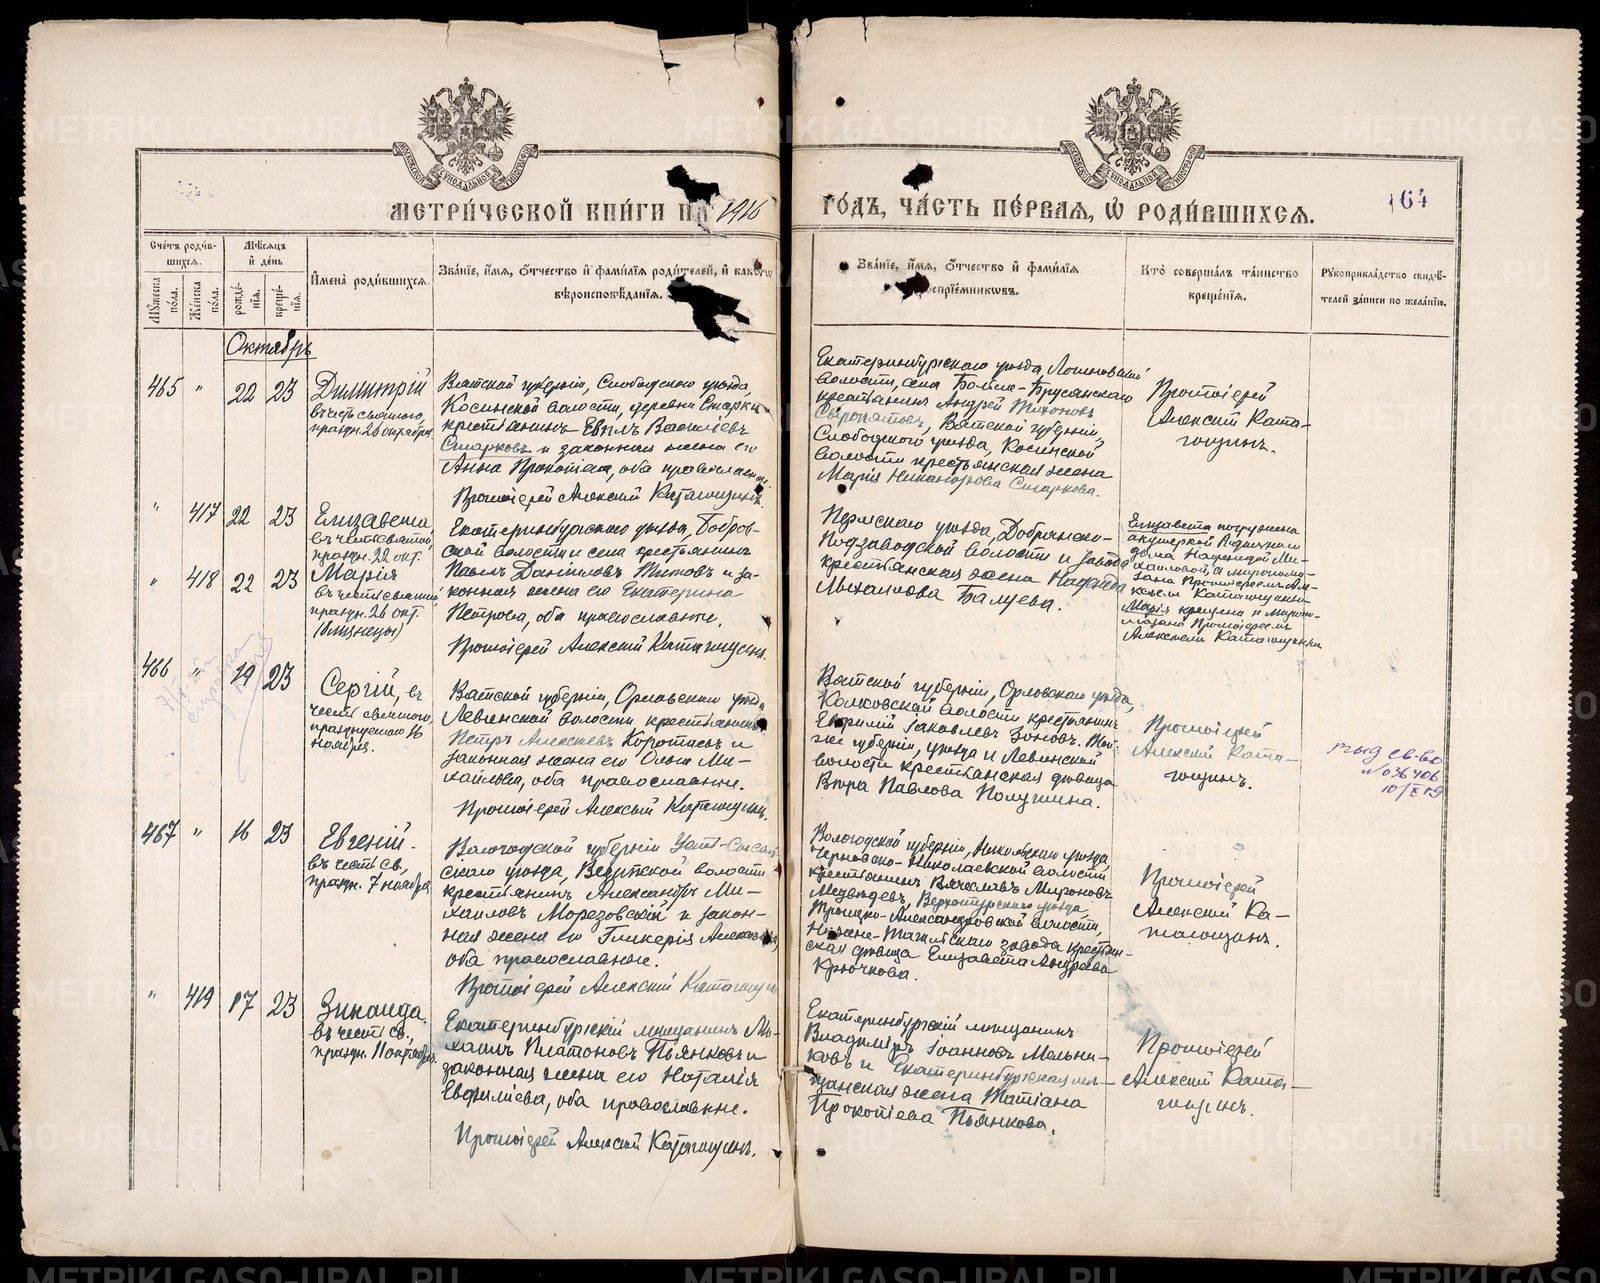 МЕТРИ́ЧЕСКОЙ КНИ́ГИ НА 1916
ГО́ДЪ, ЧА́СТЬ ПЕ́РВАЯ, Ѽ РОДИ́ВШИХСЯ.
164
Сче́тъ роди́в-
шихся.
Му́жеска по́ла.
Же́нска по́ла.
Мѣ́сяцъ
и҆ де́нь
рожде́-
нїя.
креще́-
нїя.
И҆мена̀ роди́вшихся.
Зва́нїе, и҆́мя, ѻ҆́тчество и҆ фами́лїя роди́телей, и҆ како́гѡ
вѣроисповѣ́данїя.
Зва́нїе, и҆́мя, ѻ҆́тчество и҆ фами́лїя
воспрїе́мникѡвъ.
Кто̀ соверша́лъ та́инство
креще́нїя.
Рꙋкоприкла́дство свидѣ́-
телей за́писи по жела́нїю.
Октябрь
465 " 22 23
Димитрій
въ честь святого,
праздн. 26 октября
Вятской губерніи, Слободского уѣзда,
Косинской волости, деревни Старки
крестьянинъ Евплъ Васильевъ
Старковъ и законная жена его
Анна Прокопіева, оба православные.
Протоіерей Алексій Катагощинъ.
Екатеринбургскаго уѣзда, Логиновской
волости, села Больше-Брусянскаго
крестьянинъ Андрей Тихоновъ
Сыропятовъ, Вятской губерніи,
Слободского уѣзда, Косинской
волости крестьянская жена
Марія Никанорова Старкова.
Протоіерей
Алексій Ката-
гощинъ.
" 417 22 23
Елизавета
въ честь святой,
праздн. 22 окт.
" 418 22 23
Марія
въ честь святой,
праздн. 26 окт.
(близнецы)
Екатеринбургскаго уѣзда, Бобров-
ской волости и села крестьянинъ
Павелъ Даніиловъ Титовъ и за-
конная жена его Екатерина
Петрова, оба православные.
Протоіерей Алексій Катагощинъ.
Пермскаго уѣзда, Добрянско-
Подзаводской волости и завода
крестьянская жена Надежда
Михаилова Балуева.
Елизавета погружена
акушеркой Родильнаго
дома Надеждой Ми-
хаиловой, а миропома-
зана Протоіереемъ Але-
ксіемъ Катагощинымъ
Марія крещена и миропо-
мазана Протоіереемъ
Алексіемъ Катагощинымъ
466 " 19 23
Сергій, въ
честь святого,
празднуемаго 16
ноября.
Вятской губерніи, Орловскаго уѣзда,
Левинской волости крестьянинъ
Петръ Алексѣевъ Коротаевъ и
законная жена его Ольга Ми-
хайлова, оба православные.
Протоіерей Алексій Катагощинъ.
Вятской губерніи, Орловскаго уѣзда,
Колковской волости крестьянинъ
Евфимій Іаковлевъ Зоновъ. Той-
же губерніи, уѣзда и Левинской
волости крестьянская дѣвица
Вѣра Павлова Полушина.
Протоіерей
Алексій Ката-
гощинъ.
выд св-во
№036406
10/X 19
467 " 16 23
Евгеній.
въ честь св.,
праздн. 7 ноября.
Вологодской губерніи Усть-Сысоль-
скаго уѣзда, крестьянинъ Александръ Ми-
хаиловъ Морозовскій и закон-
ная жена его Гликерія Алексѣева,
оба православные.
Протоіерей Алексій Катагощинъ
Вологодской губерніи, Никольскаго уѣзда,
Черновско-Николаевской волости
крестьянинъ Вячеславъ Мироновъ
Медвѣдевъ, Верхотурскаго уѣзда
Троицко-Александровской волости,
Нижне-Тагильскаго завода крестьян-
ская дѣвица Елизавета Андреева
Крючкова.
Протоіерей
Алексій Ка-
тагощинъ.
" 419 17 23
Зинаида.
въ честь св.,
праздн. 11 октября.
Екатеринбургскій мѣщанинъ Ми-
хаилъ Платоновъ Пьянковъ и
законная жена его Наталія
Евфиміева, оба православные.
Протоіерей Алексій Катагощинъ.
Екатеринбургскій мѣщанинъ
Владиміръ Іоанновъ Мельни-
ковъ и Екатеринбургская мѣ-
щанская жена Татіана
Прокопіева Пьянкова.
Протоіерей
Алексій Ката-
гощинъ.
METRIKI.GASO-URAL.RU